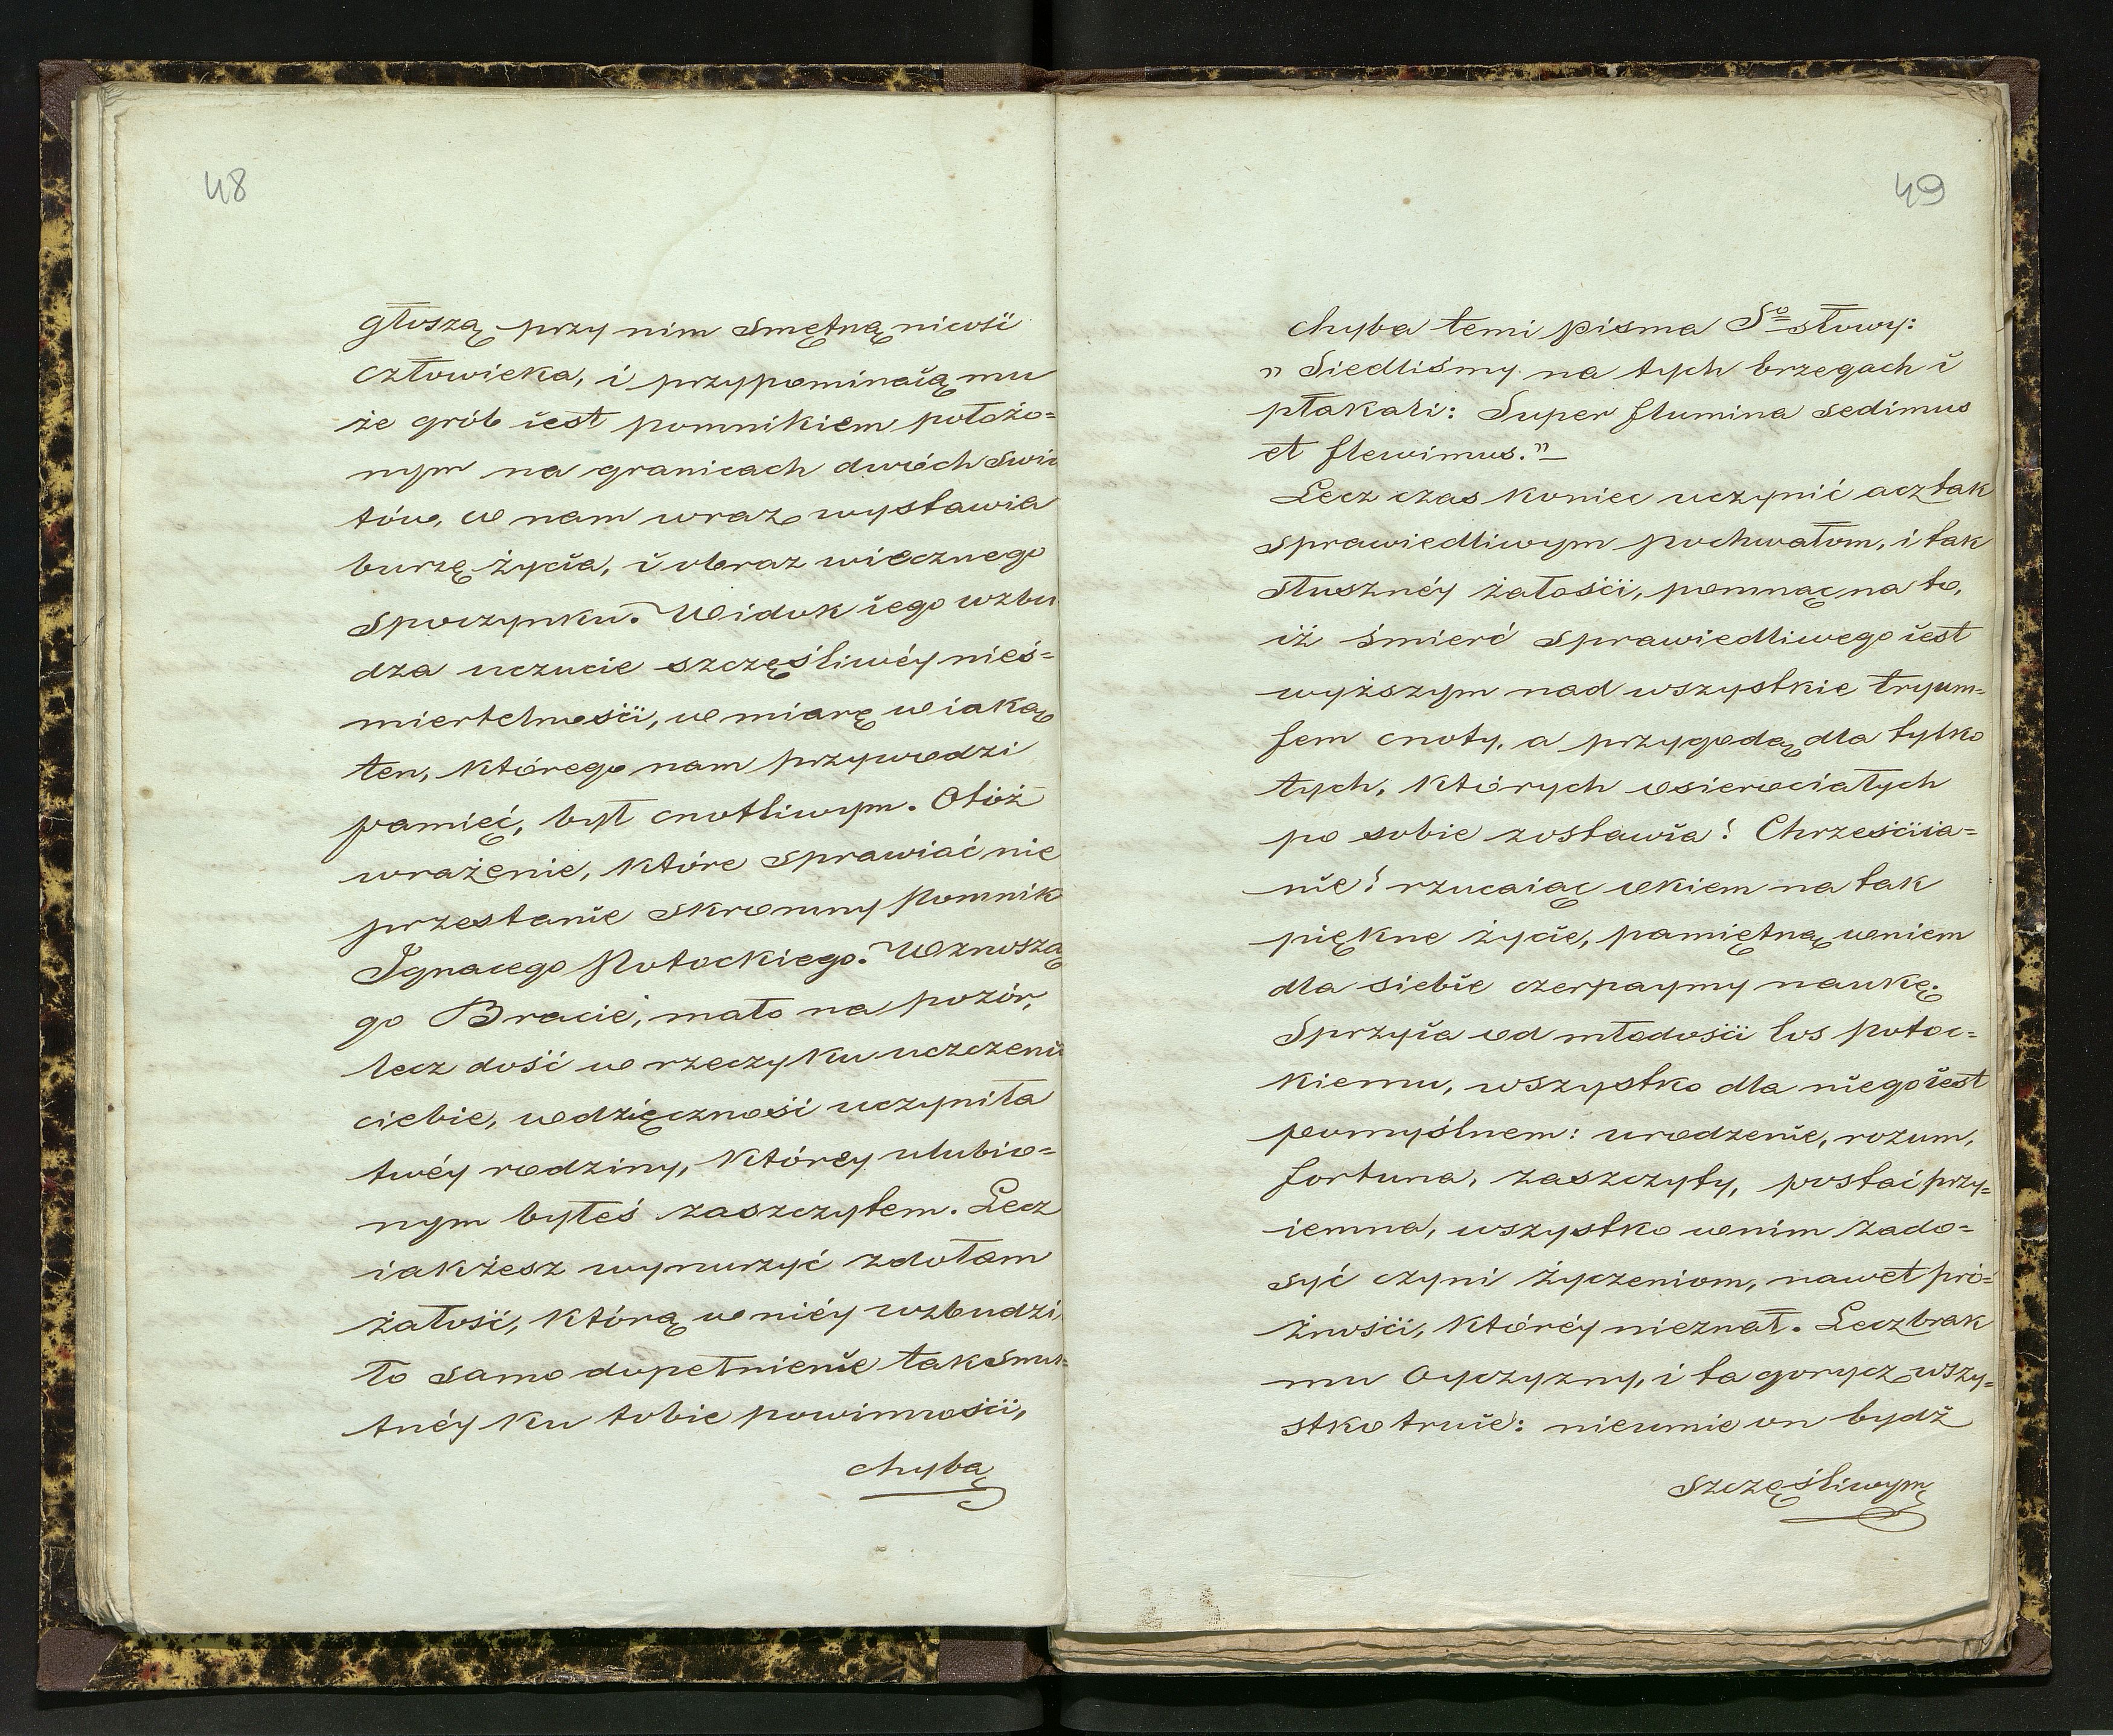 48
głoszą przy nim smętną nicość
człowieka, i przypominaią mu
że grób iest pomnikiem położo=
nym na granicach dwóch świa
tów, co nam wraz wystawia
burzę życia, i obraz wiecznego
spoczynku. Widok iego wzbu
dza uczucie szczęśliwéy nieś=
miertelności, w miarę w iaką
ten, którego nam przywodzi
pamięć, był cnotliwym. Otóż
wrażenie, które sprawiać nie
przestanie skromny Pomnik
Ignacego Potockiego. Wznosząc
go Bracie, mało na pozór,
lecz dość w rzeczy ku uczczeniu
ciebie, wdzięczność uczyniła
twéy rodziny, którey ulubio=
nym byłeś zaszczytem. Lecz
iakżesz wynurzyć zdołam
żałość, którą w niéy wzbudzi,
to samo dopełnienie tak smu=
tnéy ku tobie powinności,
chyba
49
chyba temi pisma So słowy:
„ Siedliśmy na tych brzegach i
płakali: Super flumina sedimus
et flewimus."
Lecz czas koniec uczynić acz tak
sprawiedliwym pochwałom, i tak
słusznéy żałości, pomnąc na to,
iż śmierć sprawiedliwego iest
wyższym nad wszystkie tryum=
fem cnoty, a przygodą dla tylko
tych, których osierociałych
po sobie zostawia! Chrześciia=
nie! rzucaiąc okiem na tak
piękne życie, pamiętną w niem
dla siebie czerpaymy naukę.
Sprzyia od młodości los Potoc=
kiemu, wszystko dla niego iest
pomyślnem: urodzenie, rozum,
fortuna, zaszczyty, postać przy=
iemna, wszystko w nim zado=
syć czyni życzeniom, nawet pró=
żności, któréy nieznał. Lecz brak
mu Oyczyzny, i ta gorycz wszy=
stko truie: nieumie on bydź
szczęśliwym